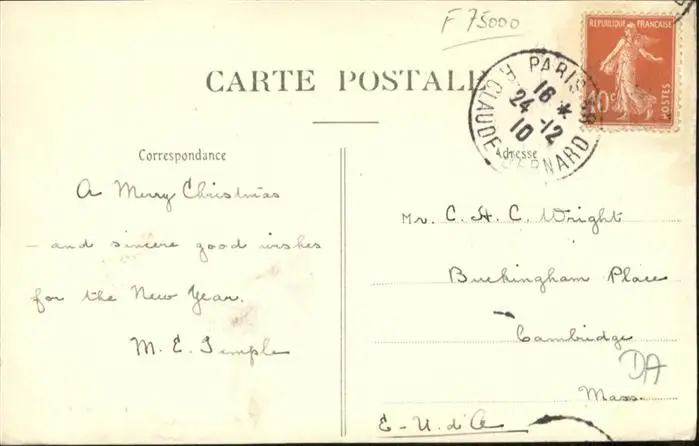 F 75000
REPUBLIQUE FRANÇAISE
10c
POSTES
PARIS
R. CLAUDE BERNARD
16 *
24 -12
10
CARTE POSTALE
Correspondance
A Merry Christmas
- and sincere good wishes
for the New Year.
M. E. Temple
Adresse
Mr. C. H. C. Wright
Buckingham Place
Cambridge
Mass.
E-U. d'A
DA